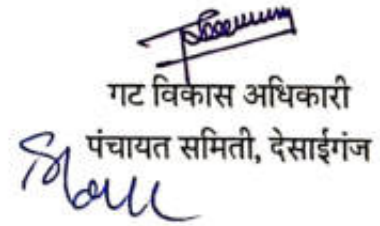 गट विकास अधिकारी
पंचायत समिती, देसाईगंज